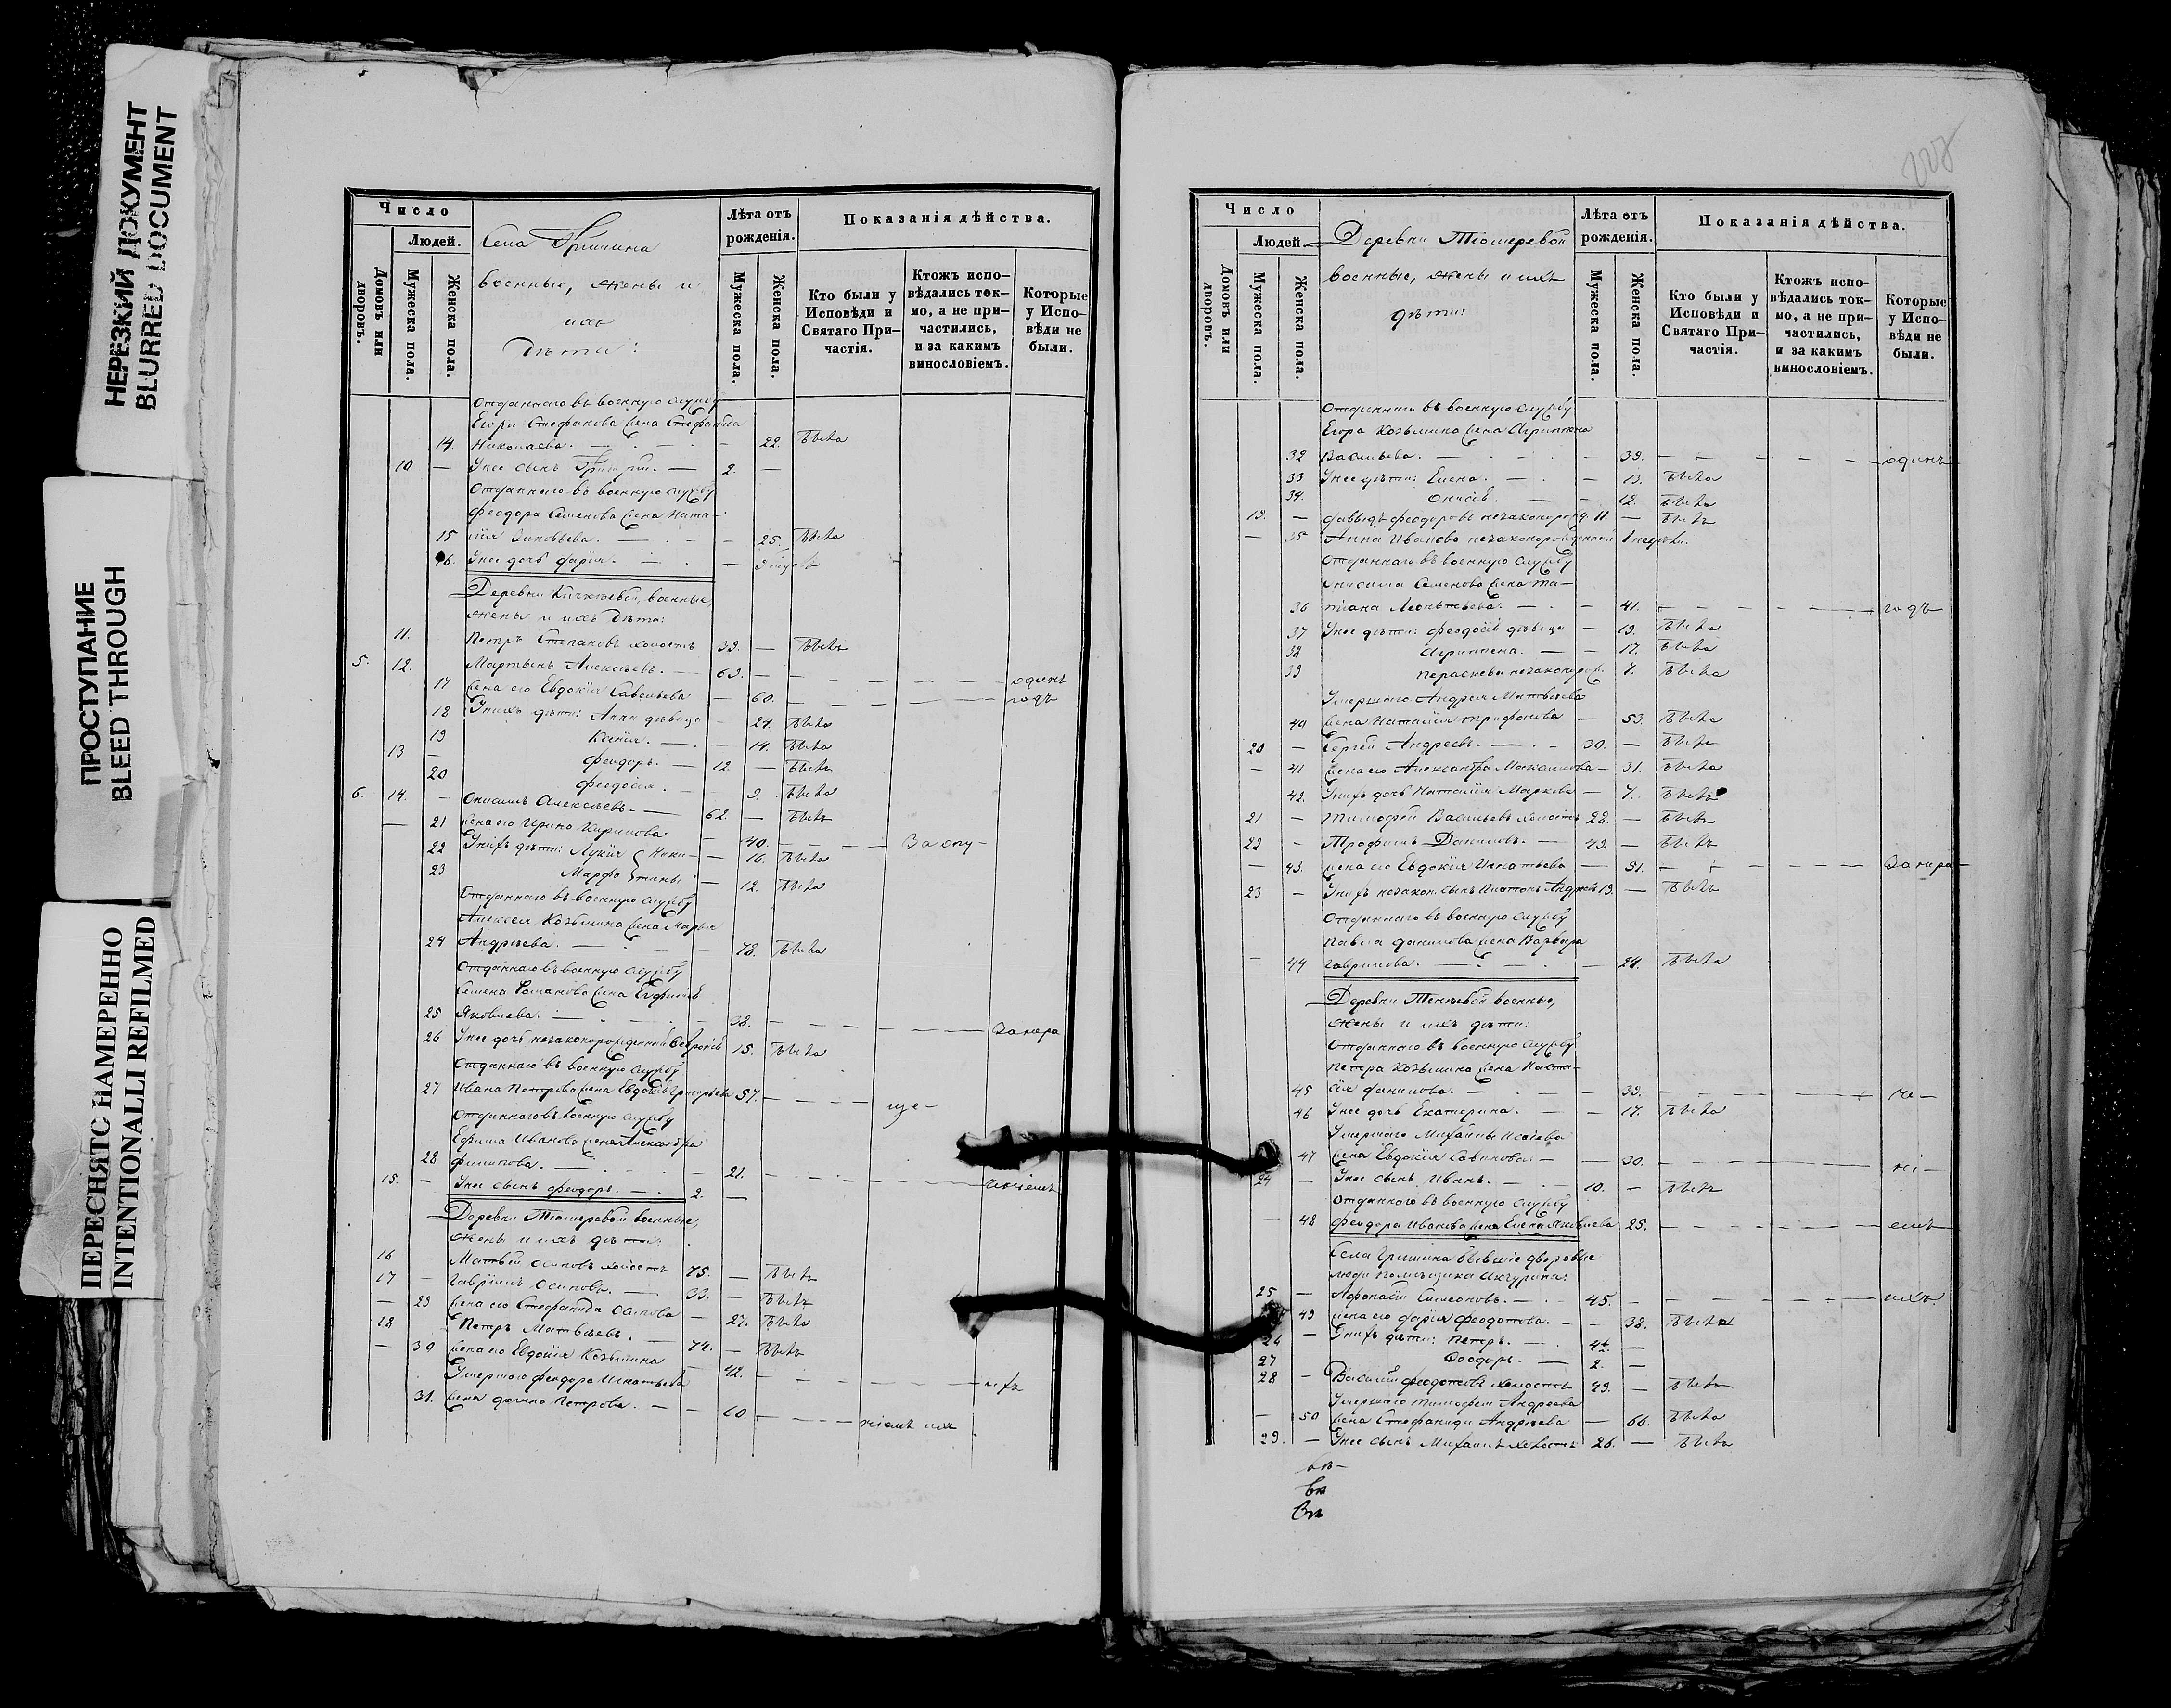 НЕРЕЗКИЙ ДОКУМЕНТ
BLURRED DOCUMENT
ПРОСТУПАНИЕ
BLEED THROUGH
ПЕРЕСНЯТО НАМЕРЕННО
INTENTIONALLI REFILMED
Число
Людей.
Домовъ или дворовъ.
Мужеска пола.
Женска пола.
Села Гришина
военные, жены и
ихъ
дѣти:
Лѣта отъ рожденія.
Мужеска пола.
Женска пола.
Показанія дѣйства.
Кто были у Исповѣди и Святаго При-частія.
Ктожъ испо-вѣдались ток-мо, а не при-частились, и за какимъ винословіемъ.
Которые у Испо-вѣди не были.
Отданнаго въ военную службу
Егора Стефанова жена Стефанида
14. Николаева. — 22. Была
10 — У нее сынъ Григорій. — 2. —
Отданнаго въ военную службу
Феодора Семенова жена Ната-
15 лія Зиновьева. — 25. Была
16. У нее дочь Дарія. —
Деревни военные,
жены и ихъ дѣти:
11. Петръ Степановъ холостъ 33. — Былъ
5. 12. Мартынъ Алексѣевъ. — 63. — одинъ
17 жена его Евдокія Савельева — 60. — годъ
18 У нихъ дѣти: Анна дѣвица — 21. Была
19 Ксенія. — 14. Была
13 — Феодоръ. — 12. — Былъ
20 Феодосія. — 9. Была
6. 14. — Онисимъ Алексѣевъ. — 62. — Былъ
— 21 жена его Ирина Кирилова — 40. — За опу-
22 У нихъ дѣти: Лукія Ники- — 16. Была
23 Марфа тины — 12. Была
Отданнаго въ военную службу
Алексея Козьмина жена Марья
24 Андреева. — 78. Была
Отданнаго въ военную службу
Семена Романова жена
25 Яковлева. — 38. — За нера
26 У нее дочь незаконорожденная 15. Была
Отданнаго въ военную службу
27 Ивана Петрова жена Евдокія Григорьева 57. — ще-
Отданнаго въ военную службу
Ефима Иванова жена Александра
28 Филипова. — 21. —
15. — У нее сынъ Феодоръ. — 2. —
Деревни Тюмеревой военные,
жены и ихъ дѣти:
16 — Матвѣй Осиповъ холостъ 75. — Былъ
17 — Гавріилъ Осиповъ. — 33. — Былъ
— 29 жена его Стефанида Осипова — 27. Была
18 Петръ Матвѣевъ. — 74. — Былъ
— 30 жена его Евдокія Козьмина — 42. —
Умершаго Феодора Игнатьева
31. жена Петрова. — 60. — ніемъ ихъ
Число
Людей.
Домовъ или дворовъ.
Мужеска пола.
Женска пола.
Деревни Тюмеревой
военные, жены и ихъ
дѣти:
Лѣта отъ рожденія.
Мужеска пола.
Женска пола.
Показанія дѣйства.
Кто были у Исповѣди и Святаго При-частія.
Ктожъ испо-вѣдались ток-мо, а не при-частились, и за какимъ винословіемъ.
Которые у Испо-вѣди не были.
Отданнаго въ военную службу
Егора Козьмина жена Агрипина
32 Васильева. — 39. — одинъ
33 У нее дѣти: Елена. — 13. Была
34. — 12. Была
19. — Давыдъ Феодоровъ незаконорожд. 11. — Былъ
— 35 Анна Иванова незаконорожденная
Отданнаго въ военную службу
Онисима Семенова жена Та-
36 тіана Леонтьева. — 41. — годъ
37 У нее дѣти: Феодосія дѣвица — 19. Была
38 Агрипена. — 17. Была
39 Параскева незаконорож. 7. Была
Умершаго Андрея Матвѣева
40 жена Наталія Трифонова — 53. Была
20 — Сергей Андреевъ. — 30. — Былъ
— 41 жена его Александра Максимова — 31. Была
42. У нихъ дочь Наталія Маркова — 7. Была
21 — Тимофей Васильевъ холостъ 28. — Былъ
22 — Трофимъ Даниловъ. — 43. — Былъ
— 43. жена его Евдокія Игнатьева — 31. — За нера-
23 — У нихъ незакон. сынъ Платонъ Андреевъ 13. — Былъ
Отданнаго въ военную службу
Павла Данилова жена Варвара
— 44 Гаврилова. — 21. Была
Деревни военные,
жены и ихъ дѣти:
Отданнаго въ военную службу
Петра Козьмина жена Наста-
45 сія Данилова. — 33. — че-
46 У нее дочь Екатерина. — 17. Была
Умершаго Михаила Исаева
47 жена Евдокія Савинова — 30. — ні-
24 — У нее сынъ Иванъ. — 10. — Былъ
Отданнаго въ военную службу
— 48 Феодора Иванова жена Елена Яковлева 25. — емъ
Села Гришина бывшіе дворовые
люди помѣщика
25 — Афонасій Симеоновъ. — 45. — ихъ.
49 жена его Дарія Феодотова. — 38. Была
26 — У нихъ дѣти: Петръ. — 4. —
27 Феодоръ. — 2. —
28 — Василій Феодотовъ холостъ 49. — Былъ
Умершаго Тимофея Андреева
— 50 жена Стефанида Андреева — 66. Была
29. — У нее сынъ Михаилъ холостъ 26. — Былъ